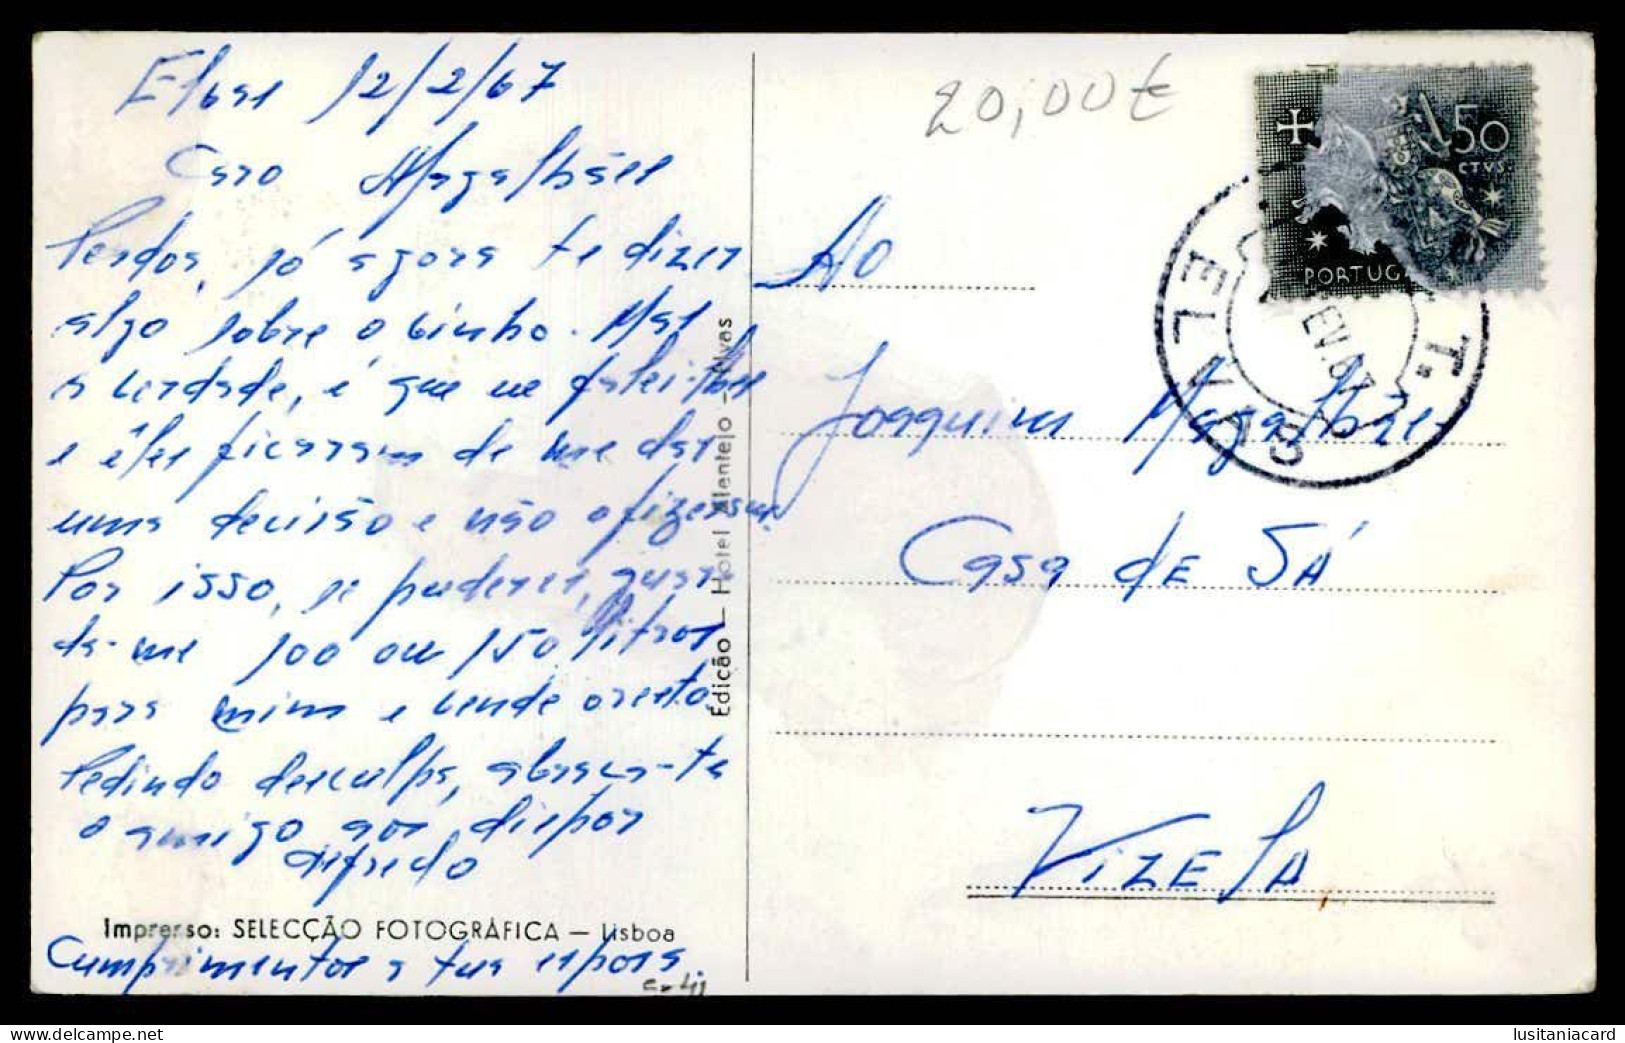 Elvas 12/2/67
Caro Magalhães
Perdoa, só agora te dizer
algo sobre o vinho. Mas
a verdade, é que me falei-lhes
e êles ficaram de me dar
uma decisão e não o fizeram.
Por isso, se puderes, guar-
da-me 100 ou 150 litros
para mim e vende o resto.
Pedindo desculpa, abraça-te
o amigo ao dispor
Alfredo
Impresso: SELECÇÃO FOTOGRÁFICA — Lisboa
Cumprimentos a tua esposa
Edição — Hotel Alentejo — Elvas
20,00€
50
CTVS.
PORTUG
ELVAS
FEV. 67
Ao
Joaquim Magalhães
Casa de SÁ
VIZELA
delcampe.net
lusitaniacard